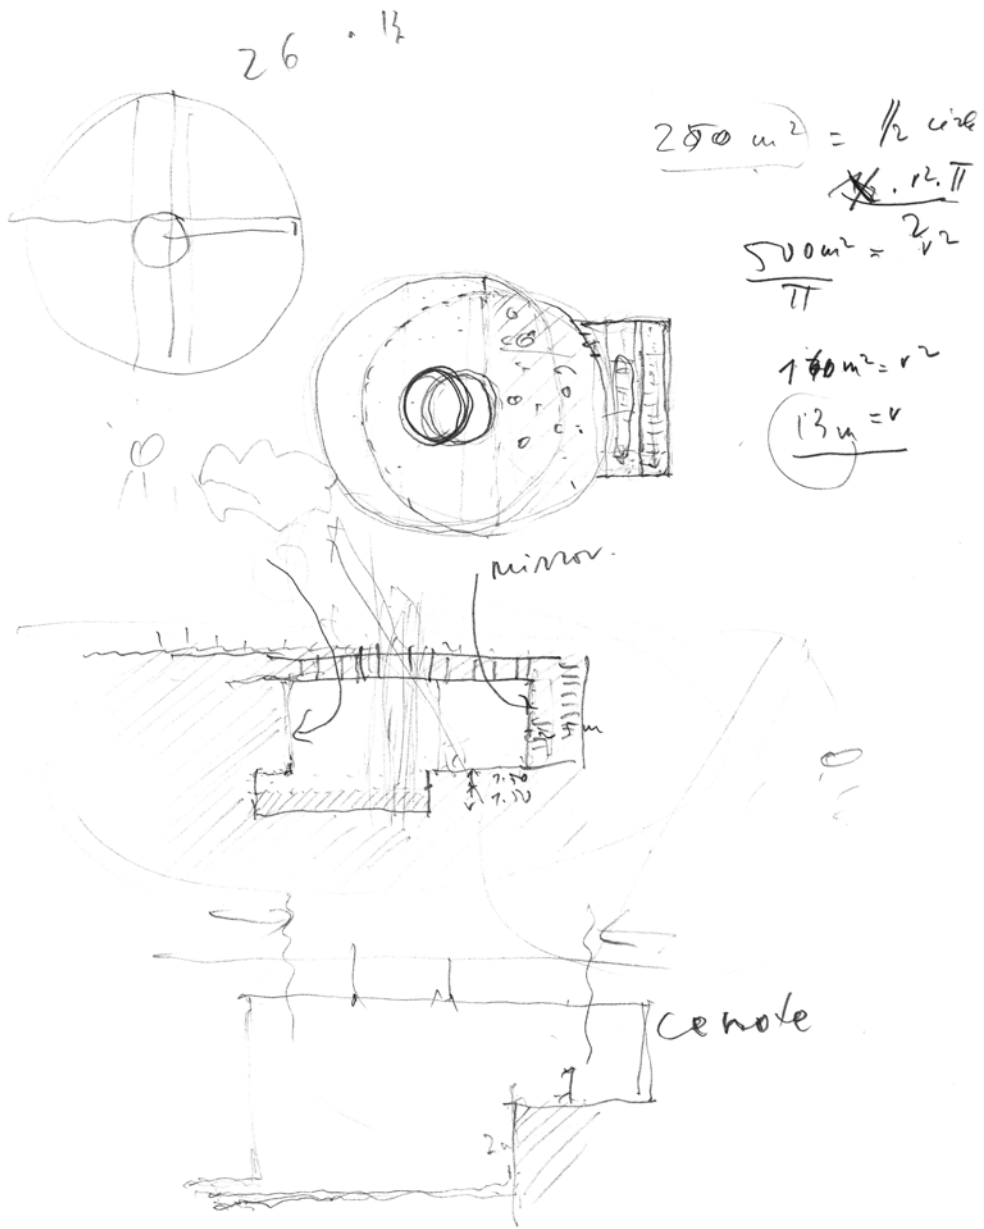 26 . 13
250 m² = 1/2 circle
r² . π
2
500m² = r²
π
160m² = r²
13m = r
mirror.
m
1.50
1.50
cenote
2m